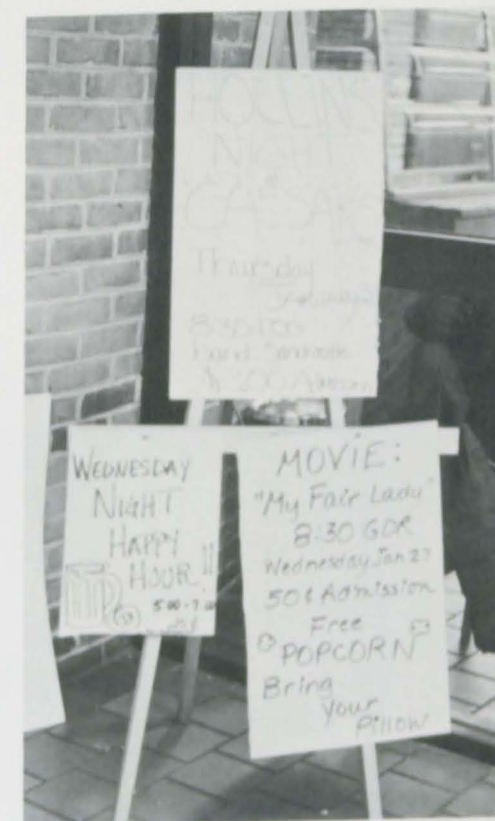 HOLLINS
NIGHT
CAESAR'S
Thursday
8:30-1:00
Band
Admission
WEDNESDAY
NIGHT
HAPPY
HOUR!!
5:00-7:00
MOVIE:
"My Fair Lady"
8:30 GDR
Wednesday Jan 27
50¢ Admission
Free
POPCORN
Bring
your
Pillow